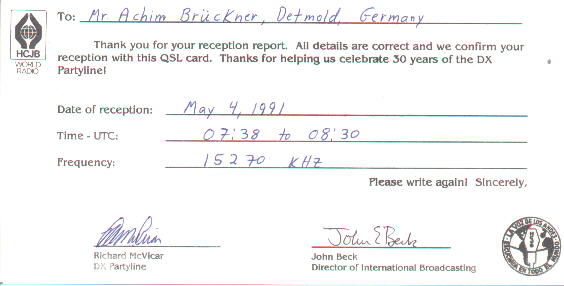 HCJB
WORLD
RADIO
To: Mr Achim Brückner, Detmold, Germany
Thank you for your reception report. All details are correct and we confirm your
reception with this QSL card. Thanks for helping us celebrate 30 years of the DX
Partyline!
Date of reception: May 4, 1991
Time - UTC: 07:38 to 08:30
Frequency: 15270 KHZ
Please write again! Sincerely,
John E Beck
Richard McVicar
DX Partyline
John Beck
Director of International Broadcasting
LA VOZ DE LOS ANDES
ESCUCHADA EN TODO EL MUNDO